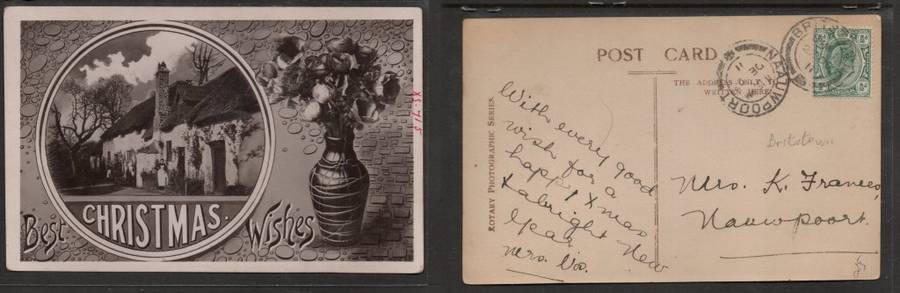 Best
CHRISTMAS.
Wishes
XS-1715
POST CARD
THE ADDRESS ONLY TO
WRITTEN HERE
ROTARY PHOTOGRAPHIC SERIES.
With every good
wish for a
happy Xmas
& a bright New
Year
Mrs.
NAAUWPOORT
DE
11
BRITS
11
Britstown
Mrs. K. Frances,
Nauwpoort.